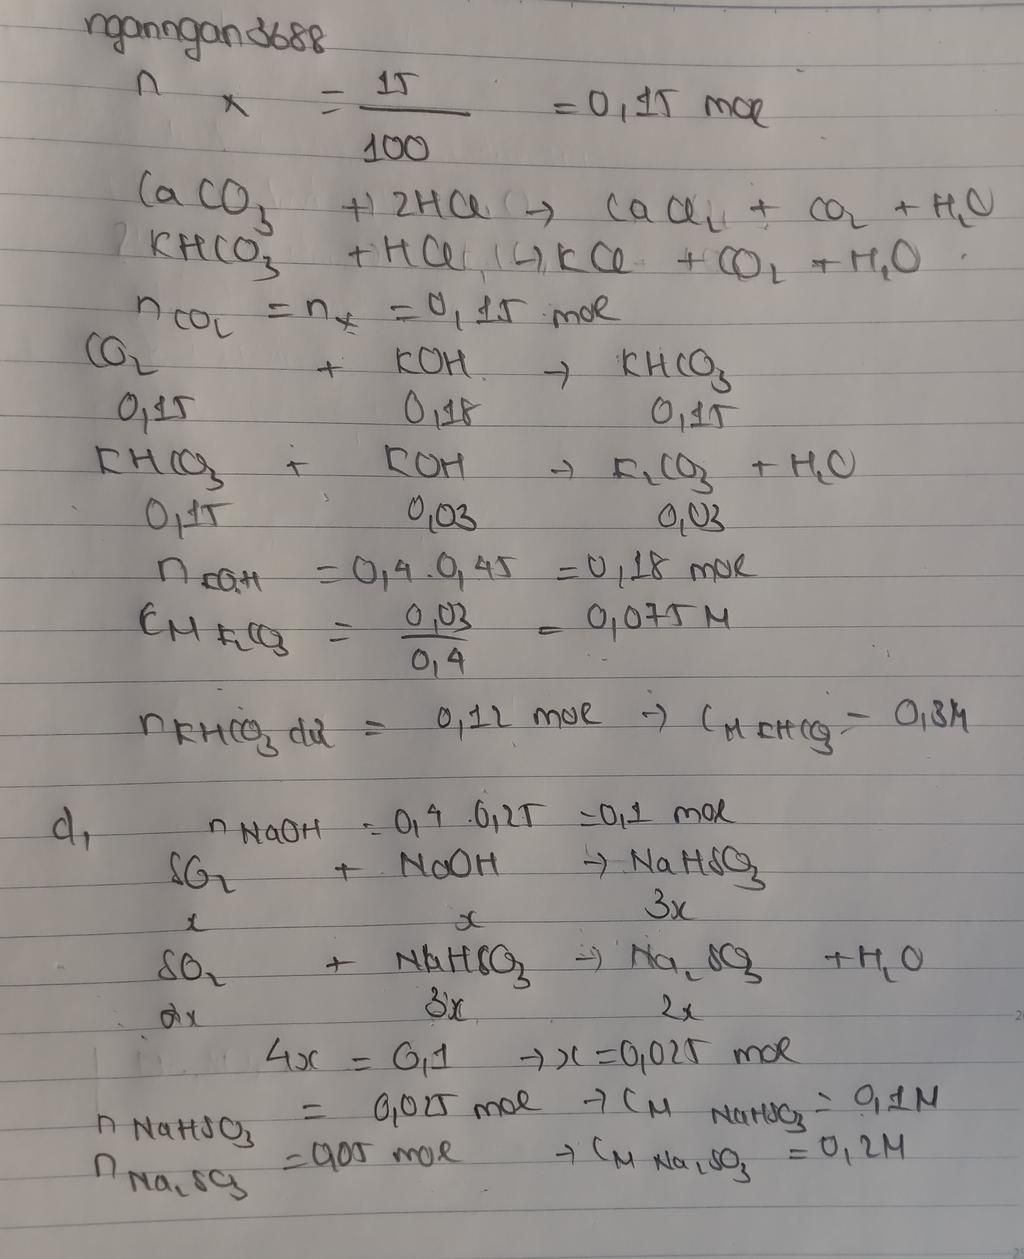 nganngan3688
n x = 15/100 = 0,15 mol
CaCO3 + 2HCl → CaCl2 + CO2 + H2O
KHCO3 + HCl → KCl + CO2 + H2O
nCO2 = nx = 0,15 mol
CO2 + KOH → KHCO3
0,15 0,18 0,15
KHCO3 + KOH → K2CO3 + H2O
0,15 0,03 0,03
nKOH = 0,4 . 0,45 = 0,18 mol
CM K2CO3 = 0,03/0,4 = 0,075M
nKHCO3 dư = 0,12 mol → CM KHCO3 = 0,3M
d, nNaOH = 0,4 . 0,25 = 0,1 mol
SO2 + NaOH → NaHSO3
x x 3x
SO2 + NaHSO3 → Na2SO3 + H2O
2x 3x 2x
4x = 0,1 → x = 0,025 mol
nNaHSO3 = 0,025 mol → CM NaHSO3 = 0,1M
nNa2SO3 = 0,05 mol → CM Na2SO3 = 0,2M